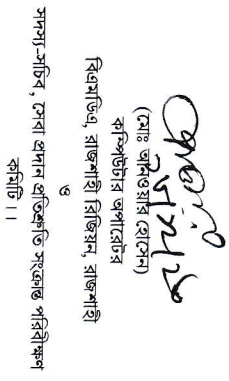 (মোঃ আনওয়ার হোসেন)
কম্পিউটার অপারেটর
বিএমডিএ, রাজশাহী রিজিয়ন, রাজশাহী
ও
সদস্য-সচিব, সেবা প্রদান প্রতিশ্রুতি সংক্রান্ত পরিবীক্ষণ
কমিটি ।।